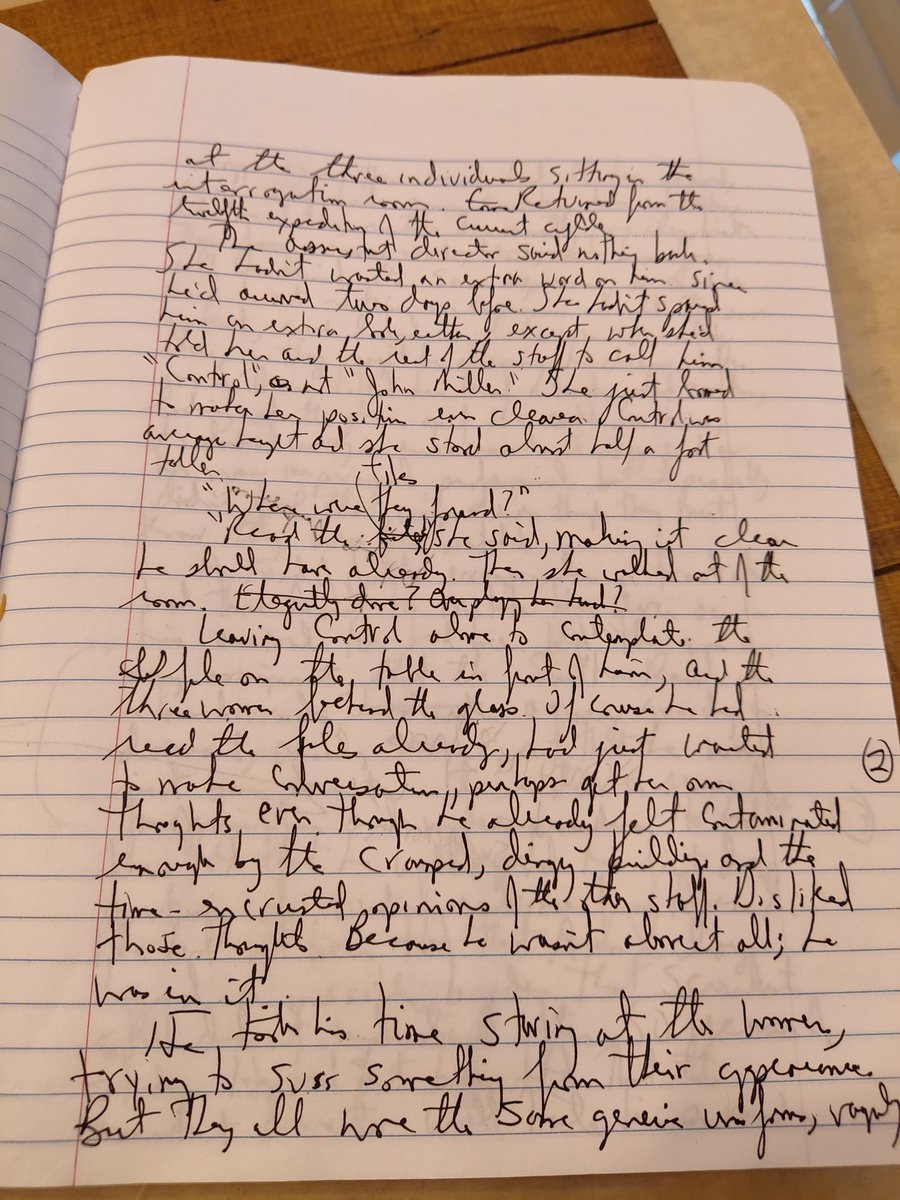 at the three individuals sitting in the
interrogation room. Returned from the
twelfth expedition of the current cycle.
The assistant director said nothing back.
She hadn't wasted an extra word on him since
he'd arrived two days before. She hadn't spared
him an extra look, either, except when she'd
told her and the rest of the staff to call him
"Control", not "John Miller." She just
to make her position even clearer. Control was
average height and she stood almost half a foot
taller.
files
"Where were they found?"
"Read the she said, making it clear
he should have already. Then she walked out of the
room. Elegantly done? Overplaying her hand?
Leaving Control alone to contemplate the
file on the table in front of him, and the
three women behind the glass. Of course he had
read the files already, had just wanted
to make conversation, perhaps get her own
thoughts, even though he already felt contaminated
2
enough by the cramped, dingy building and the
time-encrusted opinions of the other staff. Disliked
those thoughts. Because he wasn't above it all; he
was in it.
He took his time staring at the women,
trying to suss something from their appearance.
But they all wore the same generic uniforms, vaguely